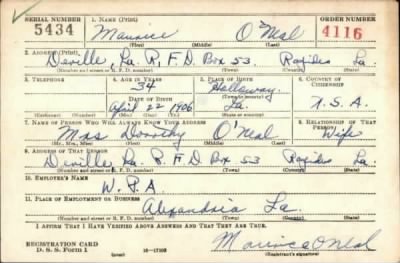 SERIAL NUMBER 1. NAME (Print) ORDER NUMBER
5434 Maurice O'Neal 4116
(First) (Middle) (Last)
2. ADDRESS (Print)
Deville, La. R, F. D. Box 53. Rapides La.
(Number and street or R. F. D. number) (Town) (County) (State)
3. TELEPHONE 4. AGE IN YEARS 5. PLACE OF BIRTH 6. COUNTRY OF CITIZENSHIP
34 Holloway
DATE OF BIRTH (Town or county)
April 22 1906 La. U.S.A.
(Exchange) (No.) (Mo.) (Day) (Yr.) (State or country)
7. NAME OF PERSON WHO WILL ALWAYS KNOW YOUR ADDRESS 8. RELATIONSHIP OF THAT PERSON
Mrs Dorothy O'Neal Wife
(Mr., Mrs., Miss) (First) (Middle) (Last)
9. ADDRESS OF THAT PERSON
Deville La. R. F. D. Box 53 Rapides La.
(Number and street or R. F. D. number) (Town) (County) (State)
10. EMPLOYER'S NAME
W. P. A
11. PLACE OF EMPLOYMENT OR BUSINESS
Alexandria La.
(Number and street or R. F. D. number) (Town) (County) (State)
I AFFIRM THAT I HAVE VERIFIED ABOVE ANSWERS AND THAT THEY ARE TRUE.
REGISTRATION CARD
D. S. S. Form 1 (over) O'Neal
(Registrant's signature)